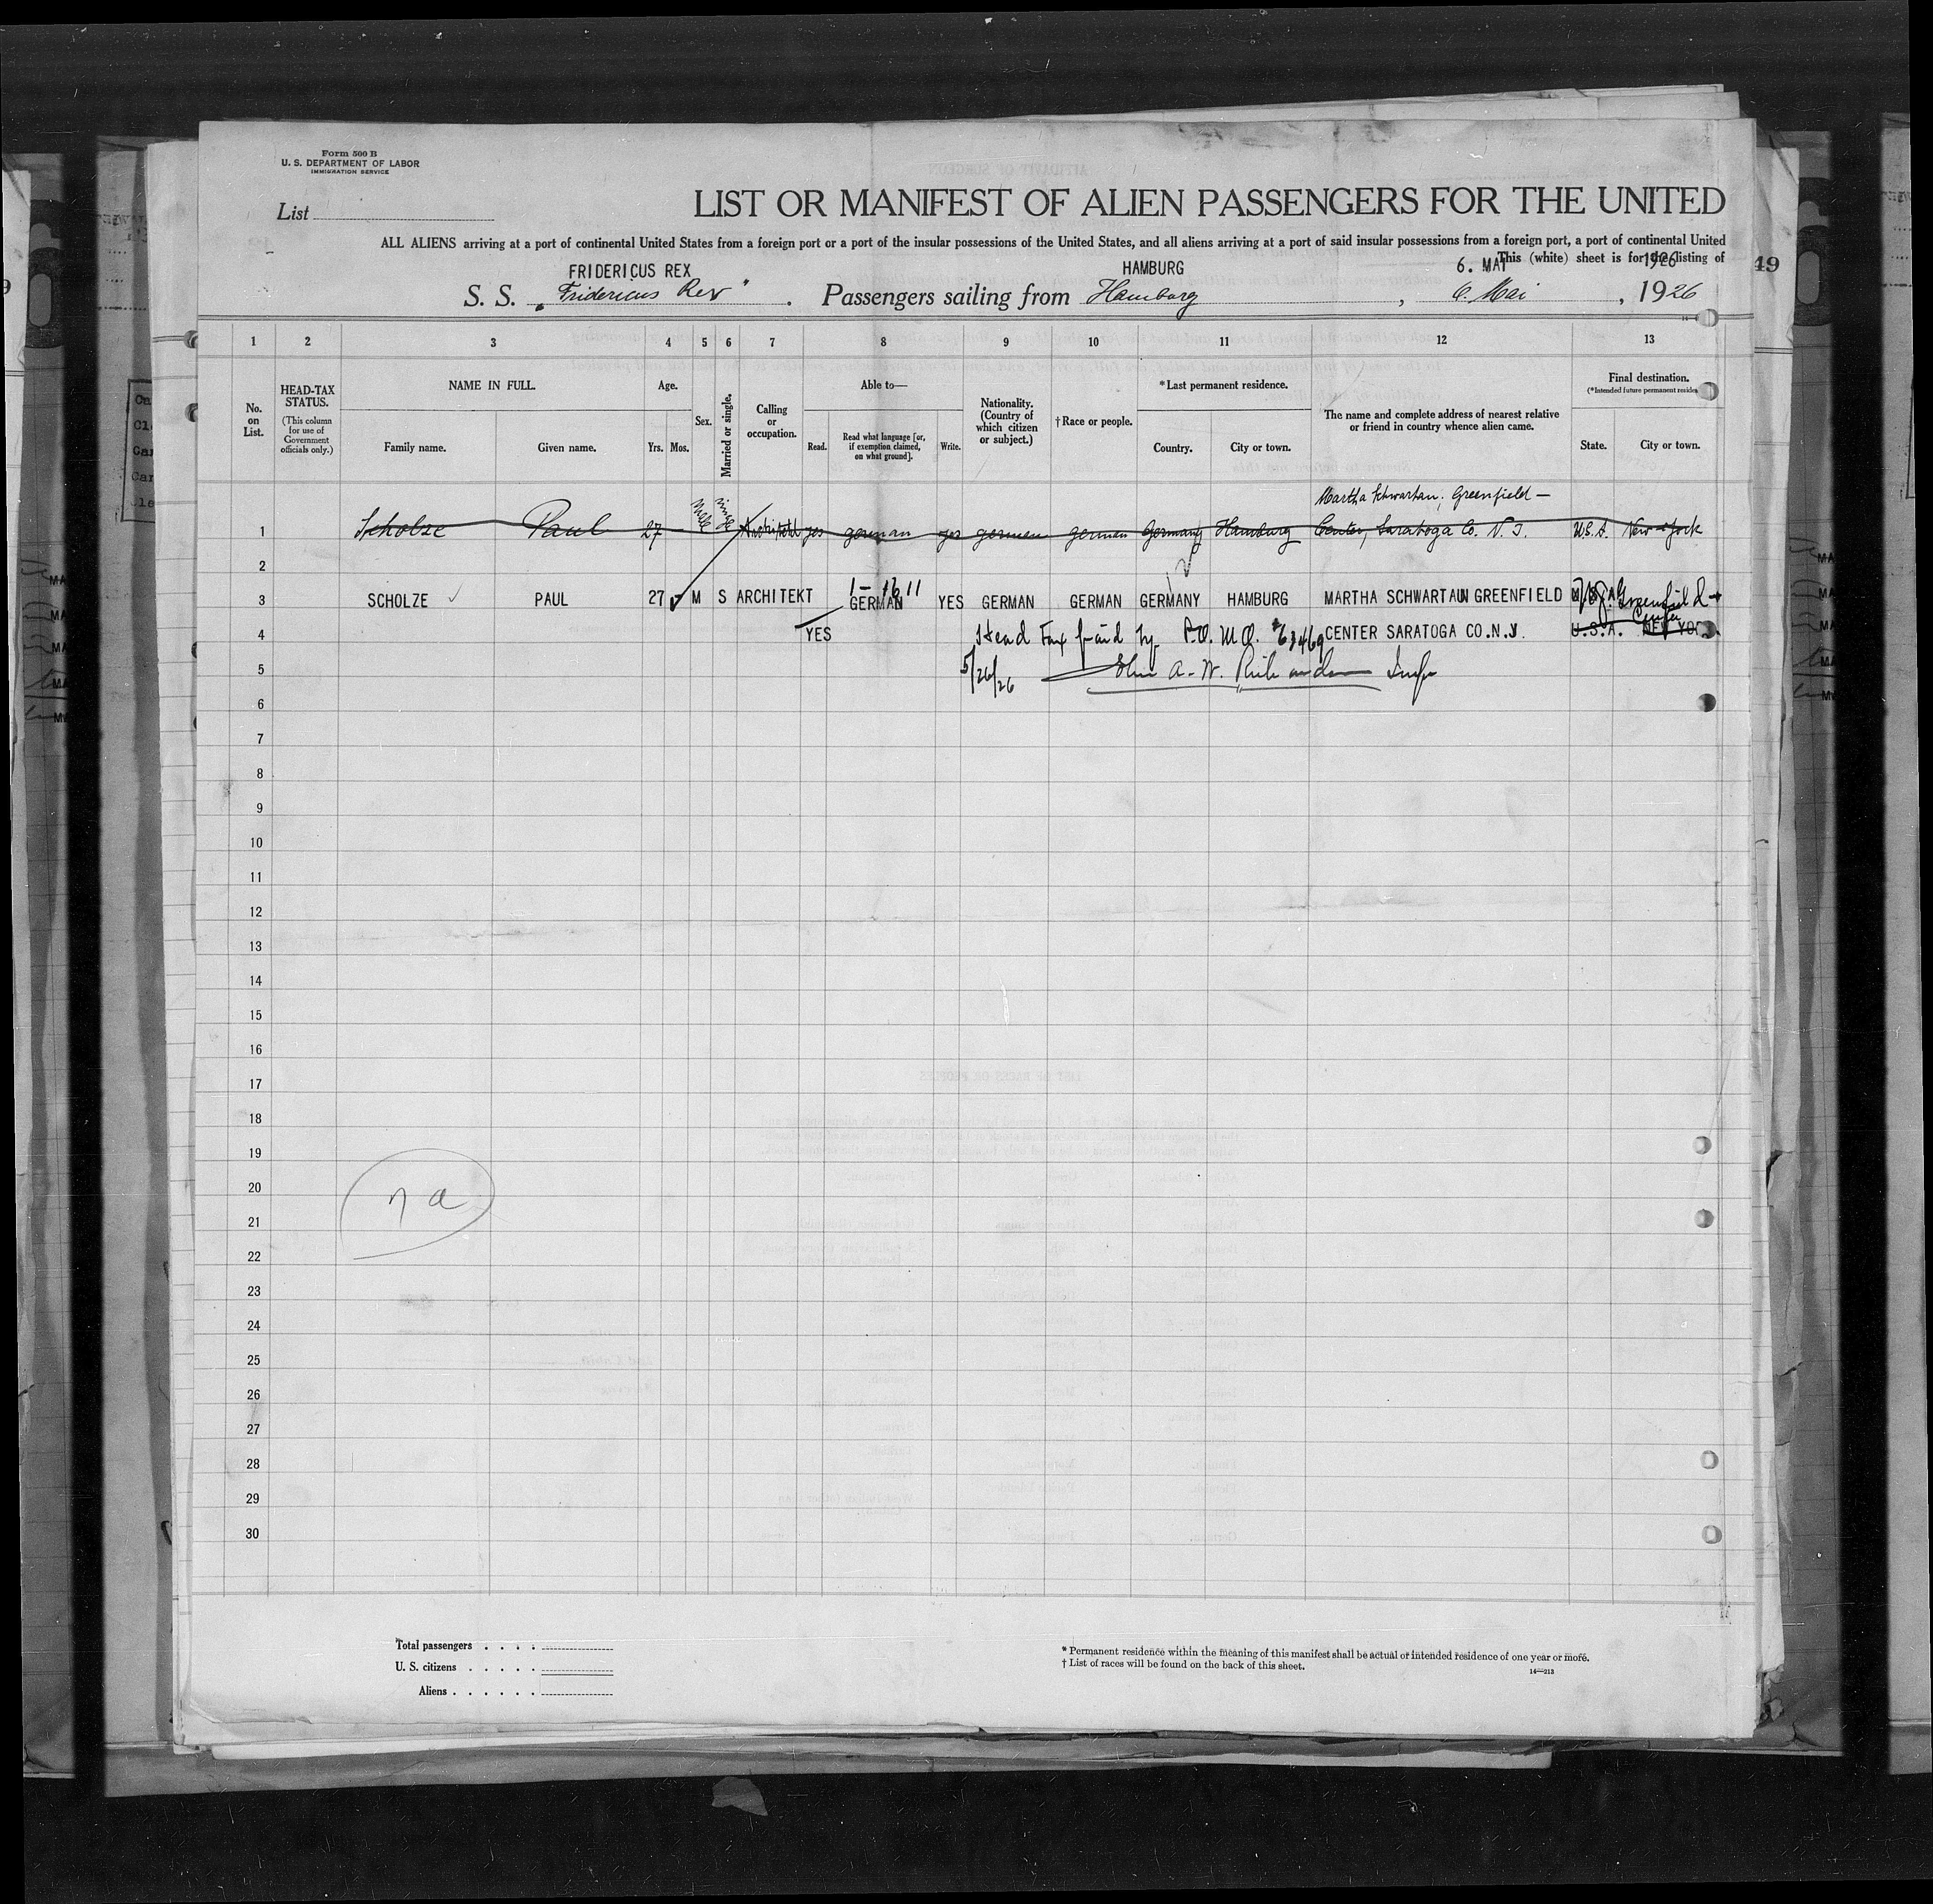 Form 500 B
U. S. DEPARTMENT OF LABOR
IMMIGRATION SERVICE
List
LIST OR MANIFEST OF ALIEN PASSENGERS FOR THE UNITED
ALL ALIENS arriving at a port of continental United States from a foreign port or a port of the insular possessions of the United States, and all aliens arriving at a port of said insular possessions from a foreign port, a port of continental United
This (white) sheet is for the listing of
FRIDERICUS REX HAMBURG 6. MAI 1926
S. S. „Fridericus Rex". Passengers sailing from Hamburg, 6. Mai, 1926
49
1 2 3 4 5 6 7 8 9 10 11 12 13
No. on List.
HEAD-TAX STATUS.
(This column for use of Government officials only.)
NAME IN FULL.
Family name. Given name.
Age.
Yrs. Mos.
Sex.
Married or single.
Calling or occupation.
Able to—
Read. Read what language [or, if exemption claimed, on what ground]. Write.
Nationality. (Country of which citizen or subject.)
†Race or people.
*Last permanent residence.
Country. City or town.
The name and complete address of nearest relative or friend in country whence alien came.
Final destination.
(*Intended future permanent residence
State. City or town.
Martha Schwartau, Greenfield —
1 Scholze Paul 27 Male single Architekt yes german yes german german Germany Hamburg Center, Saratoga Co. N. J. U.S.A. New-York
2
1 – 1611
3 SCHOLZE PAUL 27 M S ARCHITEKT GERMAN YES GERMAN GERMAN GERMANY HAMBURG MARTHA SCHWARTAU GREENFIELD Greenfield
Center
4 YES Head Tax paid by P.O. M.O. #63469 CENTER SARATOGA CO.N.J. U.S.A. NEW YORK
5 5/26/26 A. W. Insp
6
7
8
9
10
11
12
13
14
15
16
17
18
19
20 na
21
22
23
24
25
26
27
28
29
30
Total passengers . . . .
U. S. citizens . . . . .
Aliens . . . . . .
* Permanent residence within the meaning of this manifest shall be actual or intended residence of one year or more.
† List of races will be found on the back of this sheet.
14—213